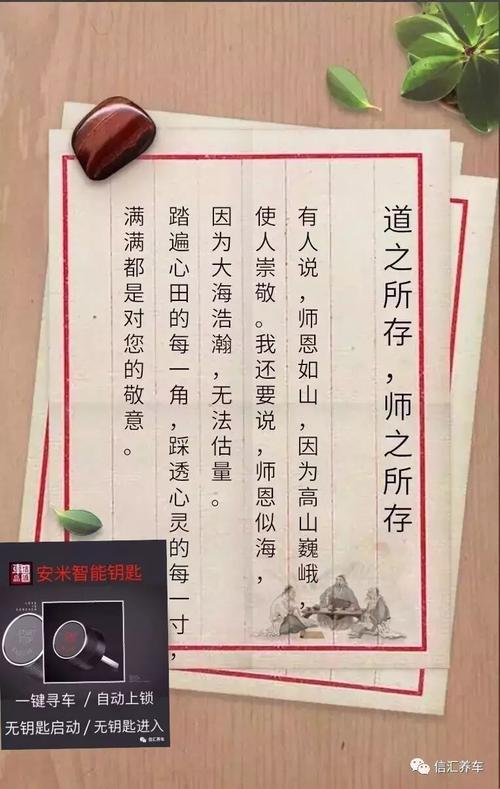 道之所存，师之所存
有人说，师恩如山，因为高山巍峨，
使人崇敬。我还要说，师恩似海，
因为大海浩瀚，无法估量。
踏遍心田的每一角，踩透心灵的每一寸，
满满都是对您的敬意。
安米智能钥匙
START
STOP
一键寻车 / 自动上锁
无钥匙启动 / 无钥匙进入
信汇养车